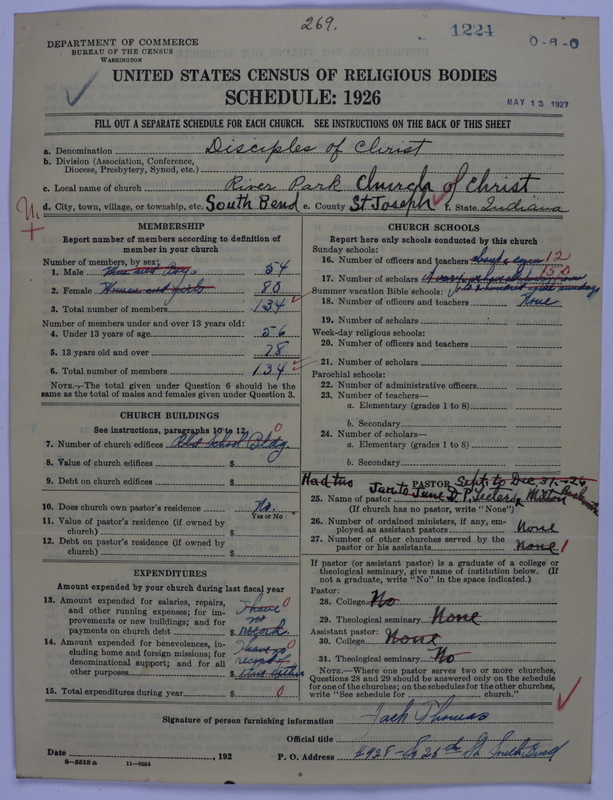 269.
1224
0-9-0
DEPARTMENT OF COMMERCE
BUREAU OF THE CENSUS
WASHINGTON
UNITED STATES CENSUS OF RELIGIOUS BODIES
SCHEDULE: 1926
MAY 13 1927
FILL OUT A SEPARATE SCHEDULE FOR EACH CHURCH. SEE INSTRUCTIONS ON THE BACK OF THIS SHEET
a. Denomination Disciples of Christ
b. Division (Association, Conference, Diocese, Presbytery, Synod, etc.)
c. Local name of church River Park Church of Christ
d. City, town, village, or township, etc. South Bend e. County St Joseph f. State Indiana
MEMBERSHIP
Report number of members according to definition of member in your church
Number of members, by sex:
1. Male 54
2. Female Women and girls 80
3. Total number of members 134
Number of members under and over 13 years old:
4. Under 13 years of age 56
5. 13 years old and over 78
6. Total number of members 134
NOTE.—The total given under Question 6 should be the same as the total of males and females given under Question 3.
CHURCH BUILDINGS
See instructions, paragraphs 10 to 12
7. Number of church edifices Old School Bldg. 0
8. Value of church edifices $
9. Debt on church edifices $
10. Does church own pastor's residence? No.
Yes or No
11. Value of pastor's residence (if owned by church) $
12. Debt on pastor's residence (if owned by church) $
EXPENDITURES
Amount expended by your church during last fiscal year
13. Amount expended for salaries, repairs, and other running expenses; for improvements or new buildings; and for payments on church debt $ I have no record 0
14. Amount expended for benevolences, including home and foreign missions; for denominational support; and for all other purposes $ I have no record of 0
15. Total expenditures during year $ 0
CHURCH SCHOOLS
Report here only schools conducted by this church
Sunday schools:
16. Number of officers and teachers 12
17. Number of scholars 150
Summer vacation Bible schools:
18. Number of officers and teachers None
19. Number of scholars
Week-day religious schools:
20. Number of officers and teachers
21. Number of scholars
Parochial schools:
22. Number of administrative officers
23. Number of teachers—
a. Elementary (grades 1 to 8)
b. Secondary
24. Number of scholars—
a. Elementary (grades 1 to 8)
b. Secondary
Had two PASTOR Sept. to Dec. 31.-26
25. Name of pastor Jan to June D. P. Teeters
(If church has no pastor, write "None")
26. Number of ordained ministers, if any, employed as assistant pastors None
27. Number of other churches served by the pastor or his assistants None 1
If pastor (or assistant pastor) is a graduate of a college or theological seminary, give name of institution below. (If not a graduate, write "No" in the space indicated.)
Pastor:
28. College No
29. Theological seminary None
Assistant pastor:
30. College None
31. Theological seminary No
NOTE.—Where one pastor serves two or more churches, Questions 28 and 29 should be answered only on the schedule for one of the churches; on the schedules for the other churches, write "See schedule for church."
Signature of person furnishing information Jack Thomas
Official title
Date , 192 P. O. Address #938 - So 26th St. South Bend
8-5318 a 11-9064